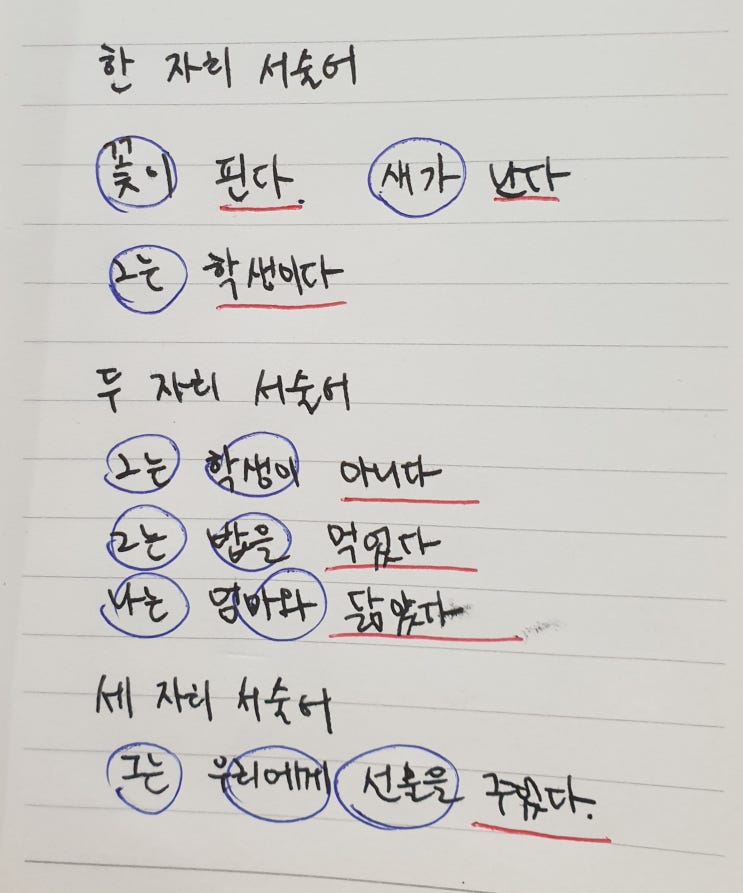 한 자리 서술어
꽃이 핀다. 새가 난다
그는 학생이다
두 자리 서술어
그는 학생이 아니다
그는 밥을 먹었다
나는 엄마와 닮았다
세 자리 서술어
그는 우리에게 선물을 주었다.